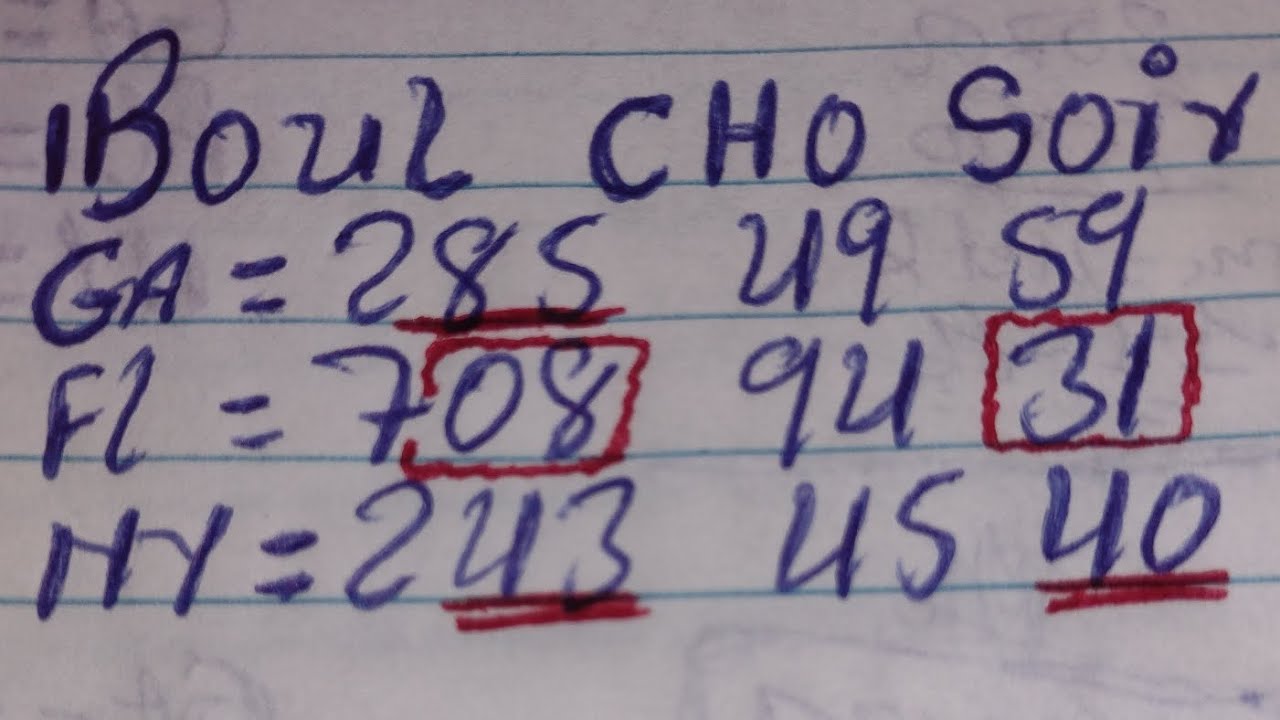 1Boul CHO Soir
GA = 285 49 59
Fl = 708 94 31
NY = 243 45 40